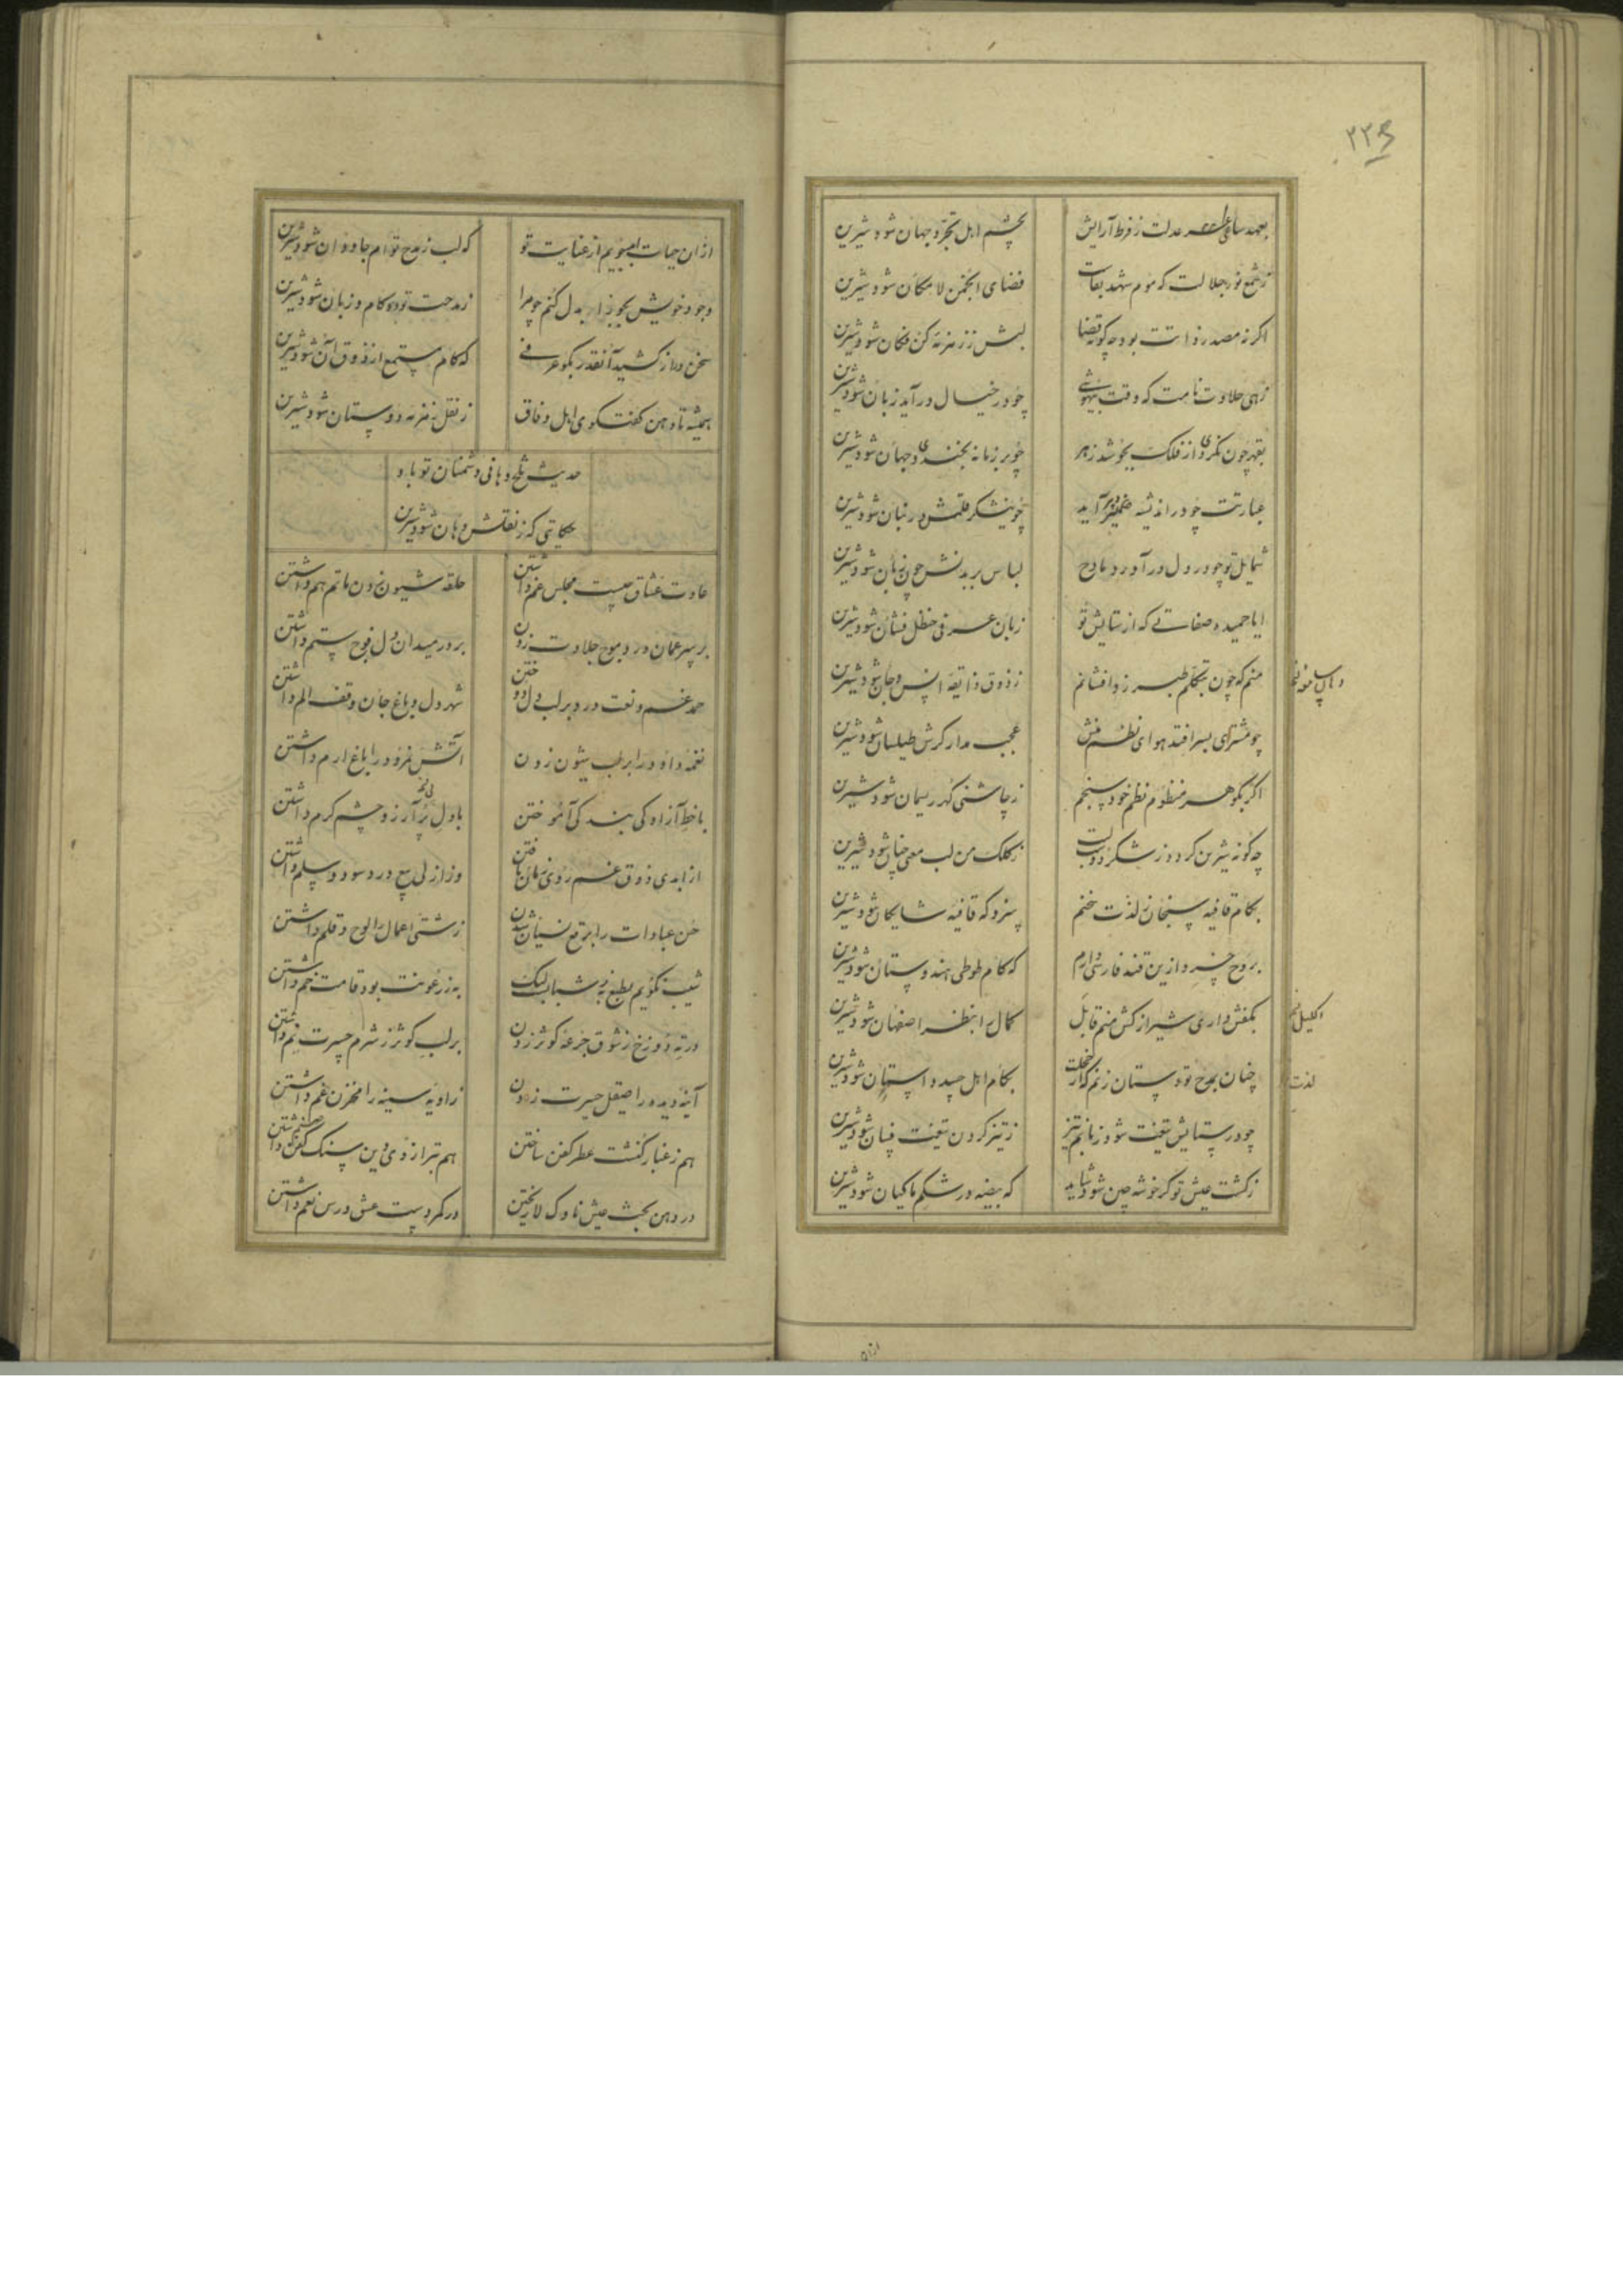 ۲۲۶
بعهد ساعی عدلت ز فرط آرایش
بچشم اهل تجرد جهان شود شیرین
ز شمع نور جلالت که موم شهد بقاست
فضای انجمن لامکان شود شیرین
اگر نه مصدر ذاتت بود چگونه قضا
لبش ز زمزمه کن فکان شود شیرین
زهی حلاوت نامت که وقت بیهوشی
چو در خیال در آید زبان شود شیرین
بقهر چون نگری از فلک بجوشد زهر
چو بر زمانه بخندی جهان شود شیرین
عبارتت چو در اندیشه ضمیر آید
چو نیشکر قلمش در بنان شود شیرین
شمایل تو چو در دل در آورد مادح
لباس بر بدنش چون زبان شود شیرین
ایا حمیده صفاتی که از ستایش تو
زبان عرفی حنظل فشان شود شیرین
منم که چون بتکلم طبرزد افشانم
ز ذوق ذایقه انس و جان شود شیرین
چو مشتری بسر افتد هوای نظم منش
عجب مدار گرش طیلسان شود شیرین
اگر بگوهر منظوم نظم خود سنجم
ز چاشنی گهر ریسمان شود شیرین
چگونه شیرین گردد ز شکر دو لبت
ز کلک من لب معنی چنان شود شیرین
بکام قافیه سنجان لذت سخنم
سزد که قافیه شایگان شود شیرین
بروح خسرو ازین قند فارسی دارم
که کام طوطی هندوستان شود شیرین
بکفش داری شیراز کش منم قابل
کمال را بنظر اصفهان شود شیرین
چنان بمدح تو دستان زنم که از خجلت
بکام اهل حسد داستان شود شیرین
چو در ستایش تیغت شود زبانم تیز
ز تیز کردن تیغت فسان شود شیرین
ز کشت عیش تو گر خوشه چین شود شاید
که بیضه در شکم ماکیان شود شیرین
اکلیل
لذت
ازان
ازان حیات بجویم از عنایت تو
که لب ز مدح توام جاودان شود شیرین
وجود خویش بدل کنم چو مرا
ز مدحت تو دو کام و زبان شود شیرین
سخن دراز کشید آنقدر بگو عرفی
که کام مستمع از ذوق آن شود شیرین
همیشه تا دهن گفتگوی اهل وفاق
ز نقل زمزمه دوستان شود شیرین
حدیث تلخ دهانی دشمنان تو باد
حکایتی که ز نقلش دهان شود شیرین
عادت عشاق چیست مجلس غم داشتن
حلقه شیون زدن ماتم هم داشتن
بر سر عمان درد موج حلاوت زدن
بر در میدان دل فوج ستم داشتن
حمد غم و نعت درد بر لب دل دوختن
شهر دل و باغ جان وقف الم داشتن
نغمه داود را بر لب شیون زدن
آتش نمرود را باغ ارم داشتن
با خط آزادگی بندگی آموختن
با دل پر آرزو چشم کرم داشتن
از ابدی ذوق غم روی زیان یافتن
وز ازلی بیع درد سود و سلم داشتن
حسن عبادات را برقع نسیان شدن
زشتی اعمال را لوح و قلم داشتن
شیب نگویم بطبع به ز شباب لیک
به ز رعونت بود قامت خم داشتن
در ته دوزخ ز شوق جرعه کوثر زدن
بر لب کوثر ز شرم حسرت نم داشتن
آینه دیده را صیقل حیرت زدن
زاویه سینه را مخزن غم داشتن
هم ز غبار کنشت عطر کفن ساختن
هم بترازوی دین سنگ داشتن
در دهن بحث عیش ناوک لا ریختن
در کمر دست عشق درس نعم داشتن